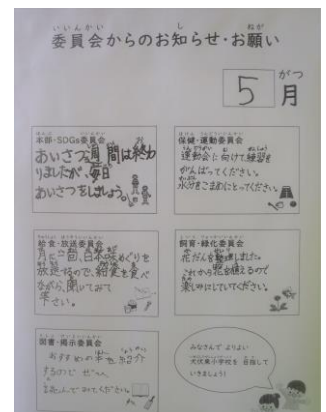 委員会からのお知らせ・お願い
5月
本部・SDGs委員会
あいさつ週間は終わ
りましたが、毎日
あいさつをしましょう。
保健・運動委員会
運動会に向けて練習を
がんばってください。
水分をこまめにとってください。
給食・放送委員会
月に二回、日本味めぐりを
放送するので、給食を食べ
ながら、聞いてみて
下さい。
飼育・緑化委員会
花だんを整理しました。
これから花を植えるので
楽しみにしていてください。
図書・掲示委員会
おすすめの本を紹介
するので ぜひ、
読んでみてください。
みなさんで よりよい
大伏東小学校を 目指して
いきましょう!